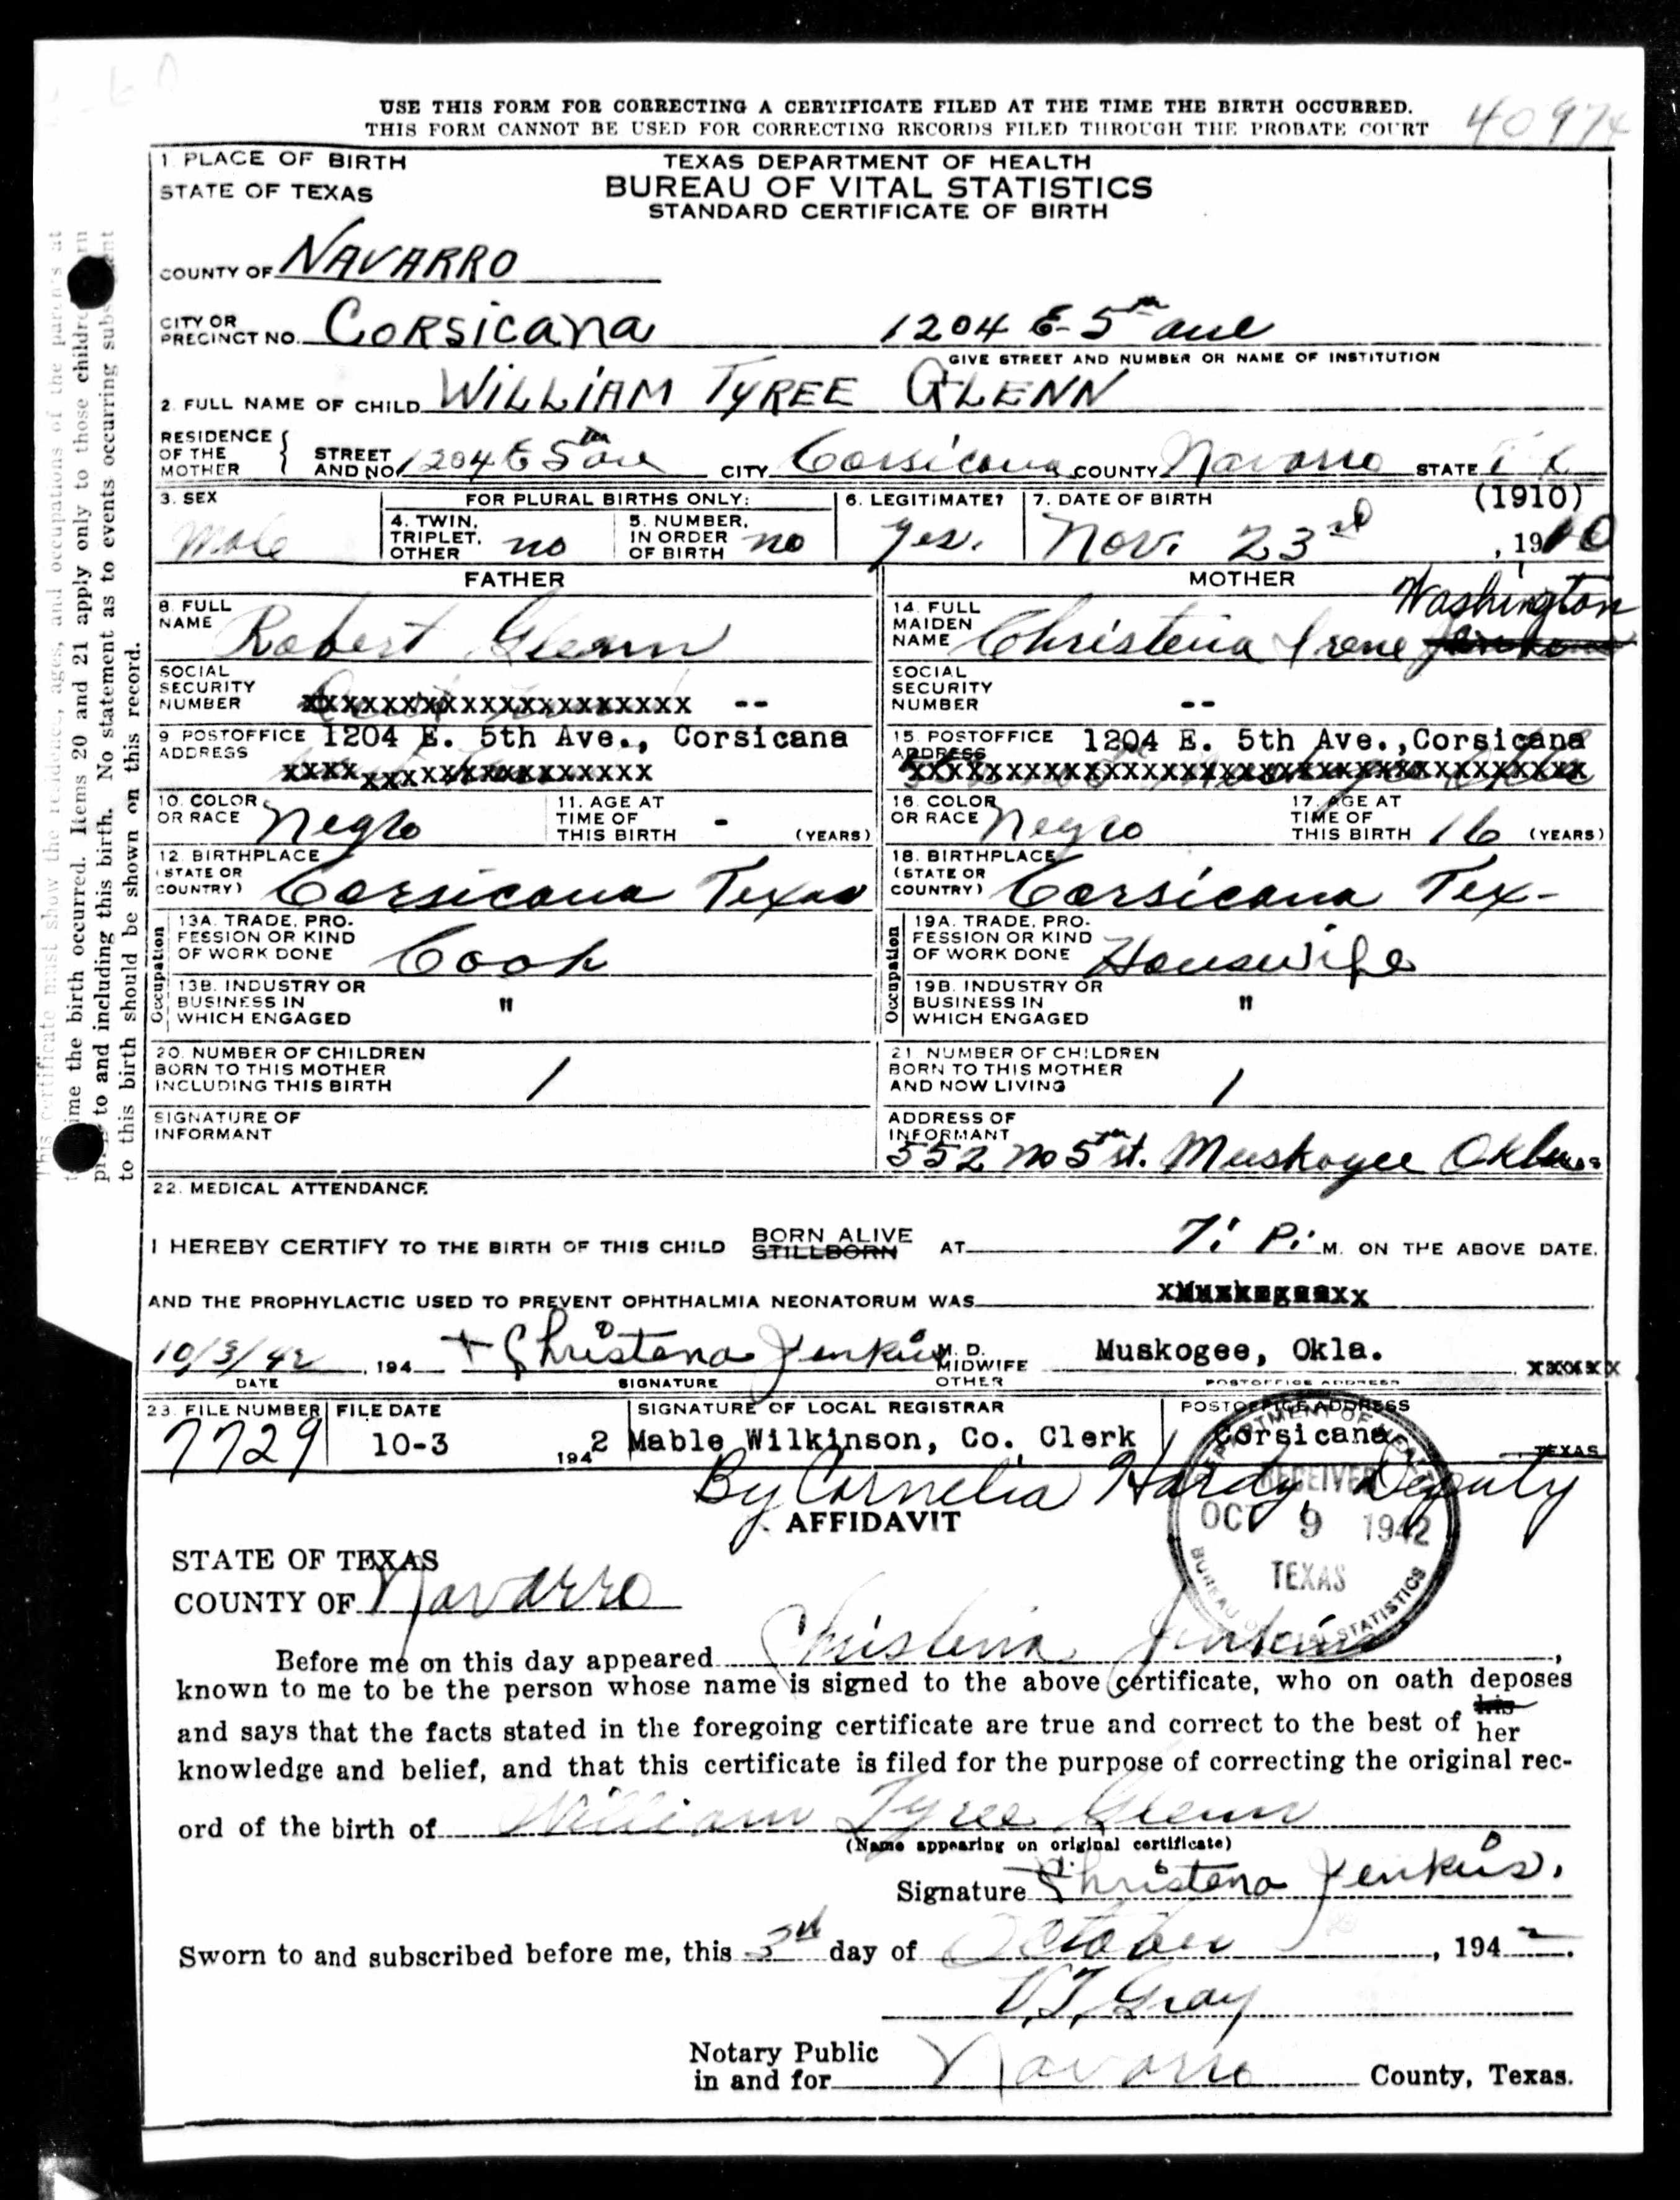 USE THIS FORM FOR CORRECTING A CERTIFICATE FILED AT THE TIME THE BIRTH OCCURRED.
THIS FORM CANNOT BE USED FOR CORRECTING RECORDS FILED THROUGH THE PROBATE COURT
40974
1. PLACE OF BIRTH
STATE OF TEXAS
TEXAS DEPARTMENT OF HEALTH
BUREAU OF VITAL STATISTICS
STANDARD CERTIFICATE OF BIRTH
COUNTY OF NAVARRO
CITY OR PRECINCT NO. CORSICANA 1204 E 5th ave
GIVE STREET AND NUMBER OR NAME OF INSTITUTION
2. FULL NAME OF CHILD WILLIAM TYREE GLENN
RESIDENCE OF THE MOTHER { STREET AND NO 1204 E 5th ave CITY Corsicana COUNTY Navarro STATE
3. SEX Male
FOR PLURAL BIRTHS ONLY:
4. TWIN, TRIPLET, OTHER no
5. NUMBER, IN ORDER OF BIRTH no
6. LEGITIMATE? Yes.
7. DATE OF BIRTH (1910)
Nov. 23rd, 1910
FATHER
8. FULL NAME Robert Glenn
SOCIAL SECURITY NUMBER xxxxxxxxxxxxxxxxxxxxx --
9. POSTOFFICE ADDRESS 1204 E. 5th Ave., Corsicana
xxxxxxxxxxxxxxxxxxxx
10. COLOR OR RACE Negro
11. AGE AT TIME OF THIS BIRTH - (YEARS)
12. BIRTHPLACE (STATE OR COUNTRY) Corsicana Texas
Occupation
13A. TRADE, PROFESSION OR KIND OF WORK DONE Cook
13B. INDUSTRY OR BUSINESS IN WHICH ENGAGED "
20. NUMBER OF CHILDREN BORN TO THIS MOTHER INCLUDING THIS BIRTH 1
SIGNATURE OF INFORMANT
MOTHER
14. FULL MAIDEN NAME Christena Irene Washington
SOCIAL SECURITY NUMBER --
15. POSTOFFICE ADDRESS 1204 E. 5th Ave.,Corsicana
xxxxxxxxxxxxxxxxxxxxxxxxxxxxxxxxxxx
16. COLOR OR RACE Negro
17. AGE AT TIME OF THIS BIRTH 16 (YEARS)
18. BIRTHPLACE (STATE OR COUNTRY) Corsicana Tex-
Occupation
19A. TRADE, PROFESSION OR KIND OF WORK DONE Housewife
19B. INDUSTRY OR BUSINESS IN WHICH ENGAGED "
21. NUMBER OF CHILDREN BORN TO THIS MOTHER AND NOW LIVING 1
ADDRESS OF INFORMANT
552 no 5th st. Muskogee Okla
22. MEDICAL ATTENDANCE
I HEREBY CERTIFY TO THE BIRTH OF THIS CHILD BORN ALIVE STILLBORN AT 7: P. M. ON THE ABOVE DATE.
AND THE PROPHYLACTIC USED TO PREVENT OPHTHALMIA NEONATORUM WAS
10/3/42, 194 + Christena Jenkins M. D. MIDWIFE OTHER Muskogee, Okla. xxxxx
DATE SIGNATURE POSTOFFICE ADDRESS
23. FILE NUMBER 7729
FILE DATE 10-3 1942
SIGNATURE OF LOCAL REGISTRAR
Mable Wilkinson, Co. Clerk
POSTOFFICE ADDRESS
Corsicana TEXAS
By Cornelia Hardy, Deputy
DEPARTMENT OF HEALTH
RECEIVED
OCT 9 1942
TEXAS
BUREAU OF VITAL STATISTICS
AFFIDAVIT
STATE OF TEXAS
COUNTY OF Navarro
Before me on this day appeared Christena Jenkins,
known to me to be the person whose name is signed to the above certificate, who on oath deposes
and says that the facts stated in the foregoing certificate are true and correct to the best of his her
knowledge and belief, and that this certificate is filed for the purpose of correcting the original rec-
ord of the birth of William Tyree Glenn
(Name appearing on original certificate)
Signature Christena Jenkins.
Sworn to and subscribed before me, this 3rd day of October, 1942.
V.T. Gray
Notary Public
in and for Navarro County, Texas.
This certificate must show the residence, ages, and occupations of the parents at
time the birth occurred. Items 20 and 21 apply only to those children born
prior to and including this birth. No statement as to events occurring subsequent
to this birth should be shown on this record.